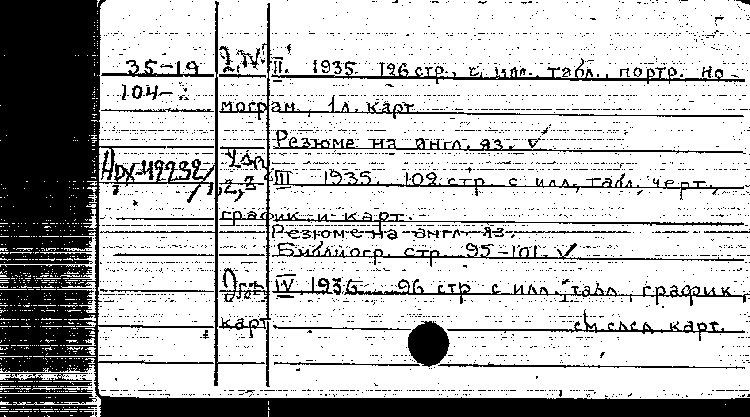 35-19 II. 1935. 126 стр., с илл. табл., портр. но-
104-
мограм., 1л. карт
Резюме на англ. яз. V
III 1935. 102 стр. с илл., табл., черт.,
график и карт.
Резюме на англ. яз.
Библиогр. стр. 95-101. V
IV 1936 96 стр с илл., табл., график,
карт. см. след. карт.